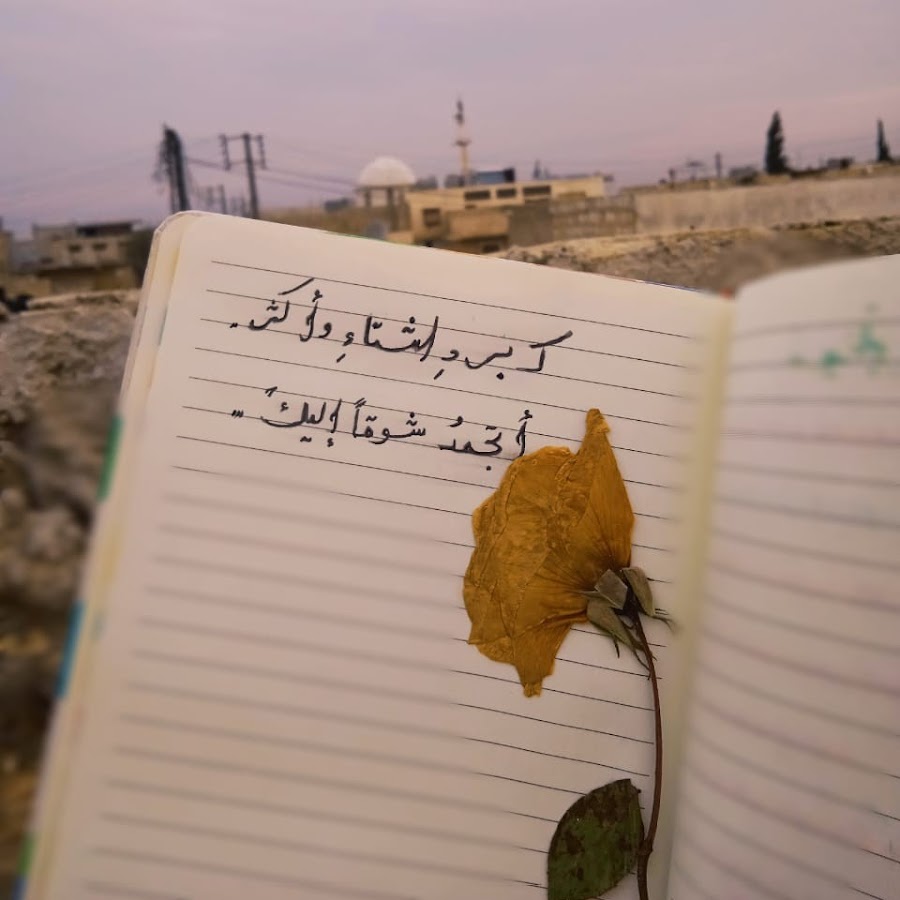 كبردِ الشتاءِ وأكثر.
أتجمدُ شوقاً إليكَ ..